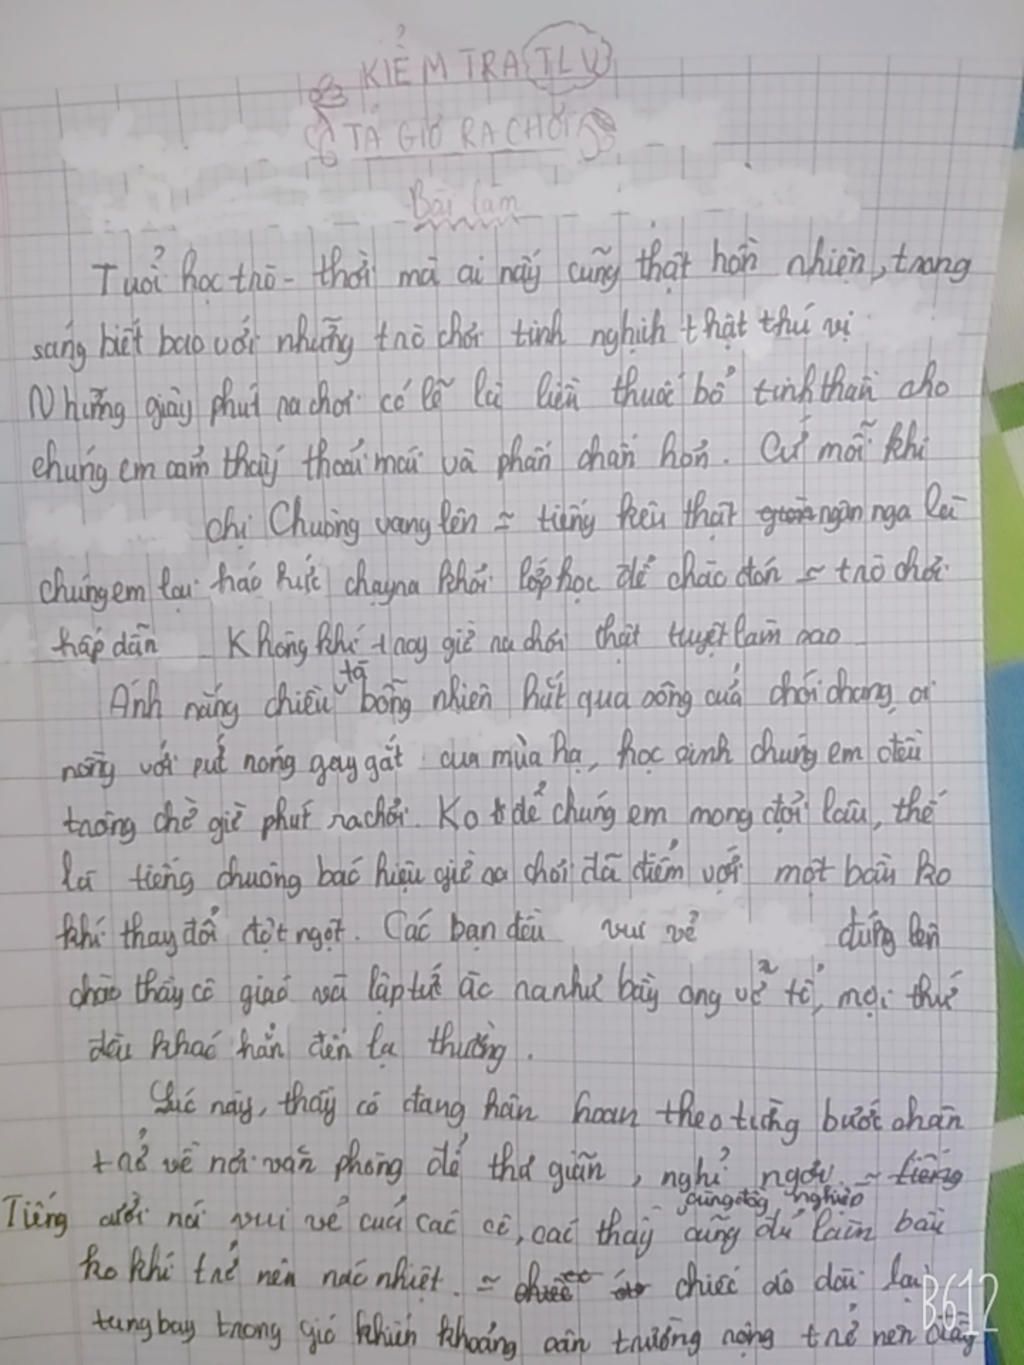 KIỂM TRA TLV
TẢ GIỜ RA CHƠI
Bài làm
Tuổi học trò - thời mà ai nấy cũng thật hồn nhiên, trong
sáng biết bao với những trò chơi tinh nghịch thật thú vị
Những giây phút ra chơi có lẽ là liều thuốc bổ tinh thần cho
chúng em cảm thấy thoải mái và phấn chấn hơn. Cứ mỗi khi
chị Chuông vang lên = tiếng kêu thật ngân nga là
chúng em lại háo hức chạy ra khỏi lớp học để chào đón = trò chơi
hấp dẫn Không khí + nay giờ ra chơi thật tuyệt làm sao
Ánh nắng chiều tà bỗng nhiên hắt qua sông cuả chói chang, oi
nồng với nóng gay gắt của mùa hạ, học sinh chúng em đều
trông chờ giờ phút ra chơi. Ko để chúng em mong đợi lâu, thế
là tiếng chuông báo hiệu giờ ra chơi đã điểm với một bầu ko
khí thay đổi đột ngột. Các bạn đều vui vẻ đứng lên
chào thầy cô giáo và lập tức ra như bầy ong vỡ tổ, mọi thứ
đều khác hẳn đến lạ thường.
Lúc này, thầy cô đang hân hoan theo từng bước chân
trở về nơi văn phòng để thư giãn, nghỉ ngơi =
Tiếng cười nói vui vẻ cuả các cô, các thầy cùng đồng nghiệp cũng đủ làm bầu
ko khí trở nên náo nhiệt. = chiếc áo dài lại
tung bay trong gió khiến khoảng sân trường rộng trở nên đầy
B612